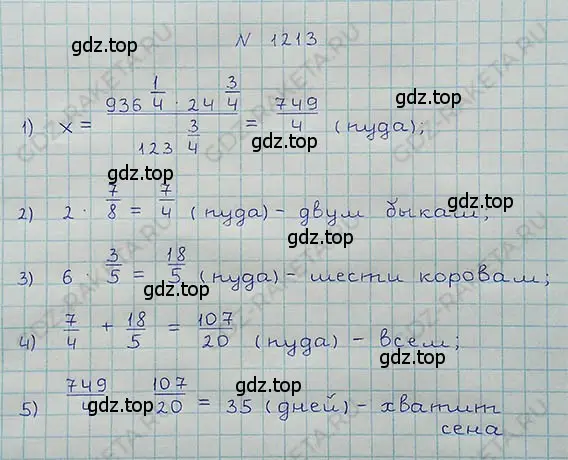 gdz.top
N 1213
1) x = 936 1/4 · 24 3/4 / 123 3/4 = 749/4 (пуда);
gdz.top
gdz.top
2) 2 · 7/8 = 7/4 (пуда) - двум быкам;
gdz.top
gdz.top
3) 6 · 3/5 = 18/5 (пуда) - шести коровам;
gdz.top
4) 7/4 + 18/5 = 107/20 (пуда) - всем;
gdz.top
gdz.top
5) 749/4 107/20 = 35 (дней) - хватит
gdz.top
gdz.top
сена
GDZ-RAKETA.RU